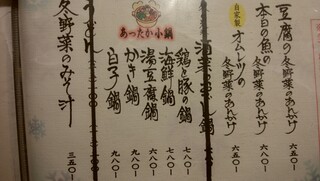 豆腐の冬野菜のあんかけ 六五〇ー
本日の魚の冬野菜のあんかけ 六八〇ー
自家製
オムレツの冬野菜のあんかけ 六五〇ー
あったか小鍋
鶏と豚の鍋 七八〇ー
海鮮鍋 七八〇ー
湯豆腐鍋 六八〇ー
かき鍋 九八〇ー
白子鍋 九八〇ー
冬野菜のみそ汁 三五〇ー